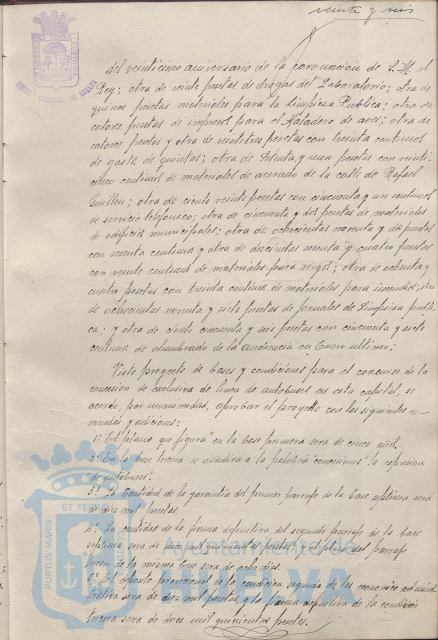 veinte y seis
del veinticinco aniversario de la coronacion de S. M. el
Rey; otra de veinte pesetas de drogas del Laboratorio; otra de
quince pesetas materiales para la Limpieza Publica; otra de
catorce pesetas de impresos para el Matadero de aves; otra de
catorce pesetas y otra de veintitres pesetas con treinta centimos
de gasto de quintas; otra de setenta y una pesetas con veinti-
cinco centimos de materiales de acerado de la calle de Rafael
Guillen; otra de ciento veinte pesetas con cincuenta y un centimos
de servicio telefonico; otra de cincuenta y dos pesetas de materiales
de edificios municipales; otra de ochocientas noventa y dos pesetas
con sesenta centimos y otra de doscientas sesenta y cuatro pesetas
con veinte centimos de materiales para riegos; otra de ochenta y
cuatro pesetas con treinta centimos de materiales para incendios; otra
de ochocientas noventa y siete pesetas de jornales de Limpieza publi-
ca; y otra de ciento cincuenta y seis pesetas con cincuenta y siete
centimos de alumbrado de la Audiencia en Enero ultimo;
Visto proyecto de bases y condiciones para el concurso de la
concesion de exclusiva de linea de autobuses en esta capital, se
acordo, por unanimidad, aprobar el proyecto con las siguientes en-
miendas y adiciones:
1ª El plazo que figura en la base primera sera de cinco años.
2ª En la base tercera se añadira a la palabra "concesiones" la expresion
"de autobuses".
3ª La cantidad de la garantia del primer parrafo de la base septima sera
de diez mil pesetas.
4ª La cantidad de la fianza definitiva del segundo parrafo de la base
septima sera de doce mil quinientas pesetas y el plazo del parrafo
tercero de la misma base sera de ocho dias.
5ª El deposito provisional de la condicion segunda de las economico administ-
trativa sera de diez mil pesetas y la fianza definitiva de la condicion
tercera sera de doce mil quinientas pesetas.
PORTUS MARIS ET TERRAE
Ayuntamiento de
HUELVA